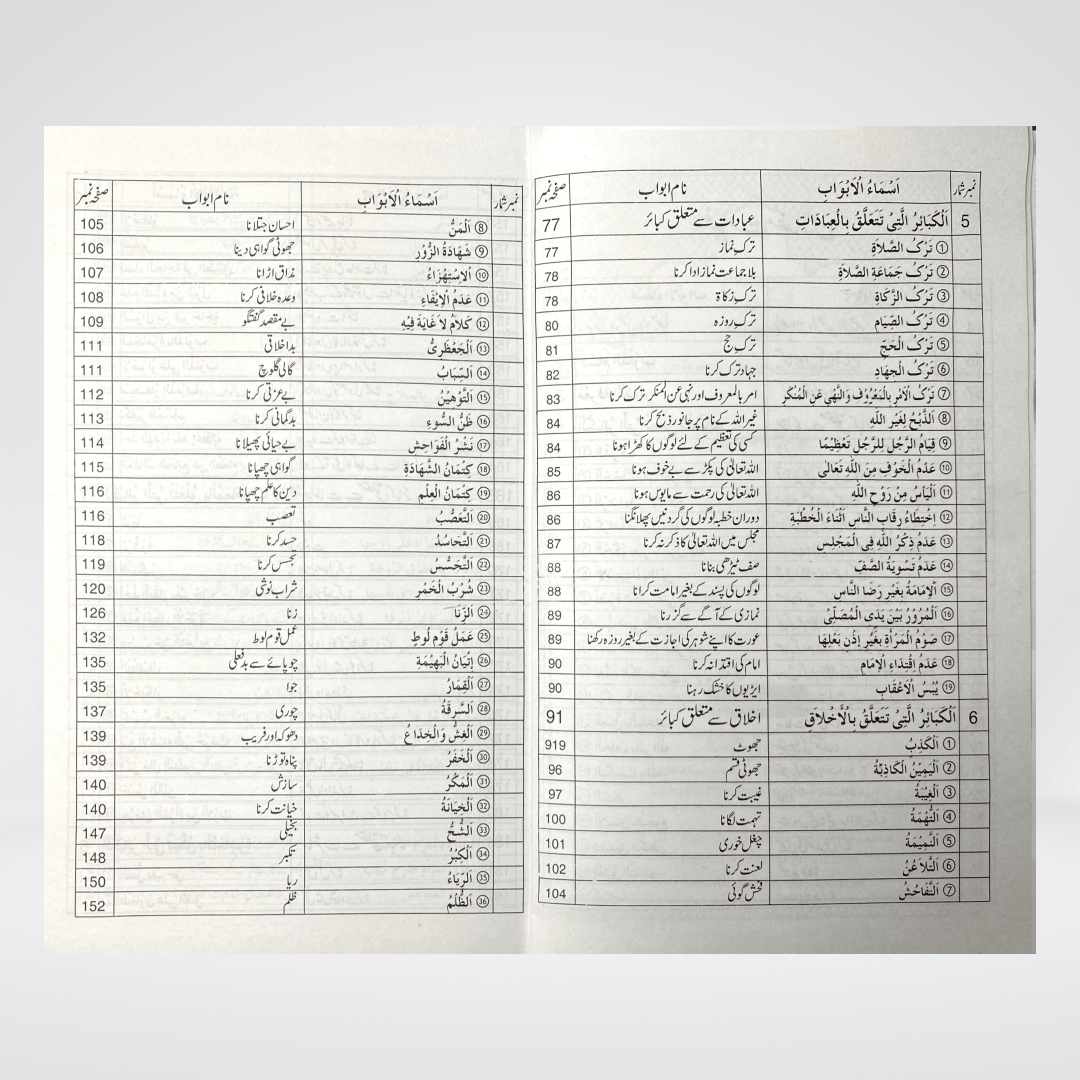 نمبر شمار اَسْمَاءُ الْاَبْوَابِ نام ابواب صفحہ نمبر
5 اَلْكَبَائِرُ الَّتِیْ تَتَعَلَّقُ بِالْعِبَادَاتِ عبادات سے متعلق کبائر 77
① تَرْکُ الصَّلَاةِ ترک نماز 77
② تَرْکُ جَمَاعَةِ الصَّلَاةِ بلا جماعت نماز ادا کرنا 78
③ تَرْکُ الزَّكَاةِ ترک زکاۃ 78
④ تَرْکُ الصِّيَامِ ترک روزہ 80
⑤ تَرْکُ الْحَجِّ ترک حج 81
⑥ تَرْکُ الْجِهَادِ جہاد ترک کرنا 82
⑦ تَرْکُ الْاَمْرِ بِالْمَعْرُوْفِ وَالنَّهْیِ عَنِ الْمُنْكَرِ امر بالمعروف اور نہی عن المنکر ترک کرنا 83
⑧ اَلذَّبْحُ لِغَيْرِ اللّٰهِ غیر اللہ کے نام پر جانور ذبح کرنا 84
⑨ قِيَامُ الرَّجُلِ لِلرَّجُلِ تَعْظِيْمًا کسی کی تعظیم کے لئے لوگوں کا کھڑا ہونا 84
⑩ عَدْمُ الْخَوْفِ مِنَ اللّٰهِ تَعَالٰی اللہ تعالیٰ کی پکڑ سے بے خوف ہونا 85
⑪ اَلْيَأْسُ مِنْ رَوْحِ اللّٰهِ اللہ تعالیٰ کی رحمت سے مایوس ہونا 86
⑫ اِخْتِطَاءُ رِقَابِ النَّاسِ اَثْنَاءَ الْخُطْبَةِ دوران خطبہ لوگوں کی گردنیں پھلانگنا 86
⑬ عَدَمُ ذِكْرُ اللّٰهِ فِی الْمَجْلِسِ مجلس میں اللہ تعالیٰ کا ذکر نہ کرنا 87
⑭ عَدَمُ تَسْوِيَةُ الصَّفِّ صف ٹیڑھی بنانا 88
⑮ اَلْاِمَامَةُ بِغَيْرِ رَضَا النَّاسِ لوگوں کی پسند کے بغیر امامت کرانا 88
⑯ اَلْمُرُوْرُ بَيْنَ يَدَیِ الْمُصَلِّیْ نمازی کے آگے سے گزرنا 89
⑰ صَوْمُ الْمَرْأَةِ بِغَيْرِ اِذْنِ بَعْلِهَا عورت کا اپنے شوہر کی اجازت کے بغیر روزہ رکھنا 89
⑱ عَدَمُ اِقْتِدَاءِ الْاِمَامِ امام کی اقتدا نہ کرنا 90
⑲ يُبْسُ الْاَعْقَابِ ایڑیوں کا خشک رہنا 90
6 اَلْكَبَائِرُ الَّتِیْ تَتَعَلَّقُ بِالْأَخْلَاقِ اخلاق سے متعلق کبائر 91
① اَلْكَذِبُ جھوٹ 919
② اَلْيَمِيْنُ الْكَاذِبَةُ جھوٹی قسم 96
③ اَلْغِيْبَةُ غیبت کرنا 97
④ اَلتُّهْمَةُ تہمت لگانا 100
⑤ اَلنَّمِيْمَةُ چغل خوری 101
⑥ اَلتَّلَاعُنُ لعنت کرنا 102
⑦ اَلتَّفَاحُشُ فحش گوئی 104
نمبر شمار اَسْمَاءُ الْاَبْوَابِ نام ابواب صفحہ نمبر
⑧ اَلْمَنُّ احسان جتلانا 105
⑨ شَهَادَةُ الزُّوْرِ جھوٹی گواہی دینا 106
⑩ اَلْاِسْتِهْزَاءُ مذاق اڑانا 107
⑪ عَدَمُ الْاِيْفَاءِ وعدہ خلافی کرنا 108
⑫ كَلَامٌ لَا غَايَةَ فِيْهِ بے مقصد گفتگو 109
⑬ اَلْجَعْظَرِیُّ بد اخلاقی 111
⑭ اَلسِّبَابُ گالی گلوچ 111
⑮ اَلتَّوْهِيْنُ بے عزتی کرنا 112
⑯ ظَنُّ السُّوْءِ بدگمانی کرنا 113
⑰ نَشْرُ الْفَوَاحِشِ بے حیائی پھیلانا 114
⑱ كِتْمَانُ الشَّهَادَةِ گواہی چھپانا 115
⑲ كِتْمَانُ الْعِلْمِ دین کا علم چھپانا 116
⑳ اَلتَّعَصُّبُ تعصب 116
㉑ اَلتَّحَاسُدُ حسد کرنا 118
㉒ اَلتَّجَسُّسُ تجسس کرنا 119
㉓ شُرْبُ الْخَمْرِ شراب نوشی 120
㉔ اَلزِّنَا زنا 126
㉕ عَمَلُ قَوْمِ لُوْطٍ عمل قوم لوط 132
㉖ اِتْيَانُ الْبَهِيْمَةِ چوپائے سے بد فعلی 135
㉗ اَلْقِمَارُ جوا 135
㉘ اَلسَّرِقَةُ چوری 137
㉙ اَلْغِشُّ وَالْخِدَاعُ دھوکہ اور فریب 139
㉚ اَلْخَفَرُ پناہ توڑنا 139
㉛ اَلْمَكْرُ سازش 140
㉜ اَلْخِيَانَةُ خیانت کرنا 140
㉝ اَلشُّحُّ بخیلی 147
㉞ اَلْكِبْرُ تکبر 148
㉟ اَلرِّيَاءُ ریا 150
㊱ اَلظُّلْمُ ظلم 152